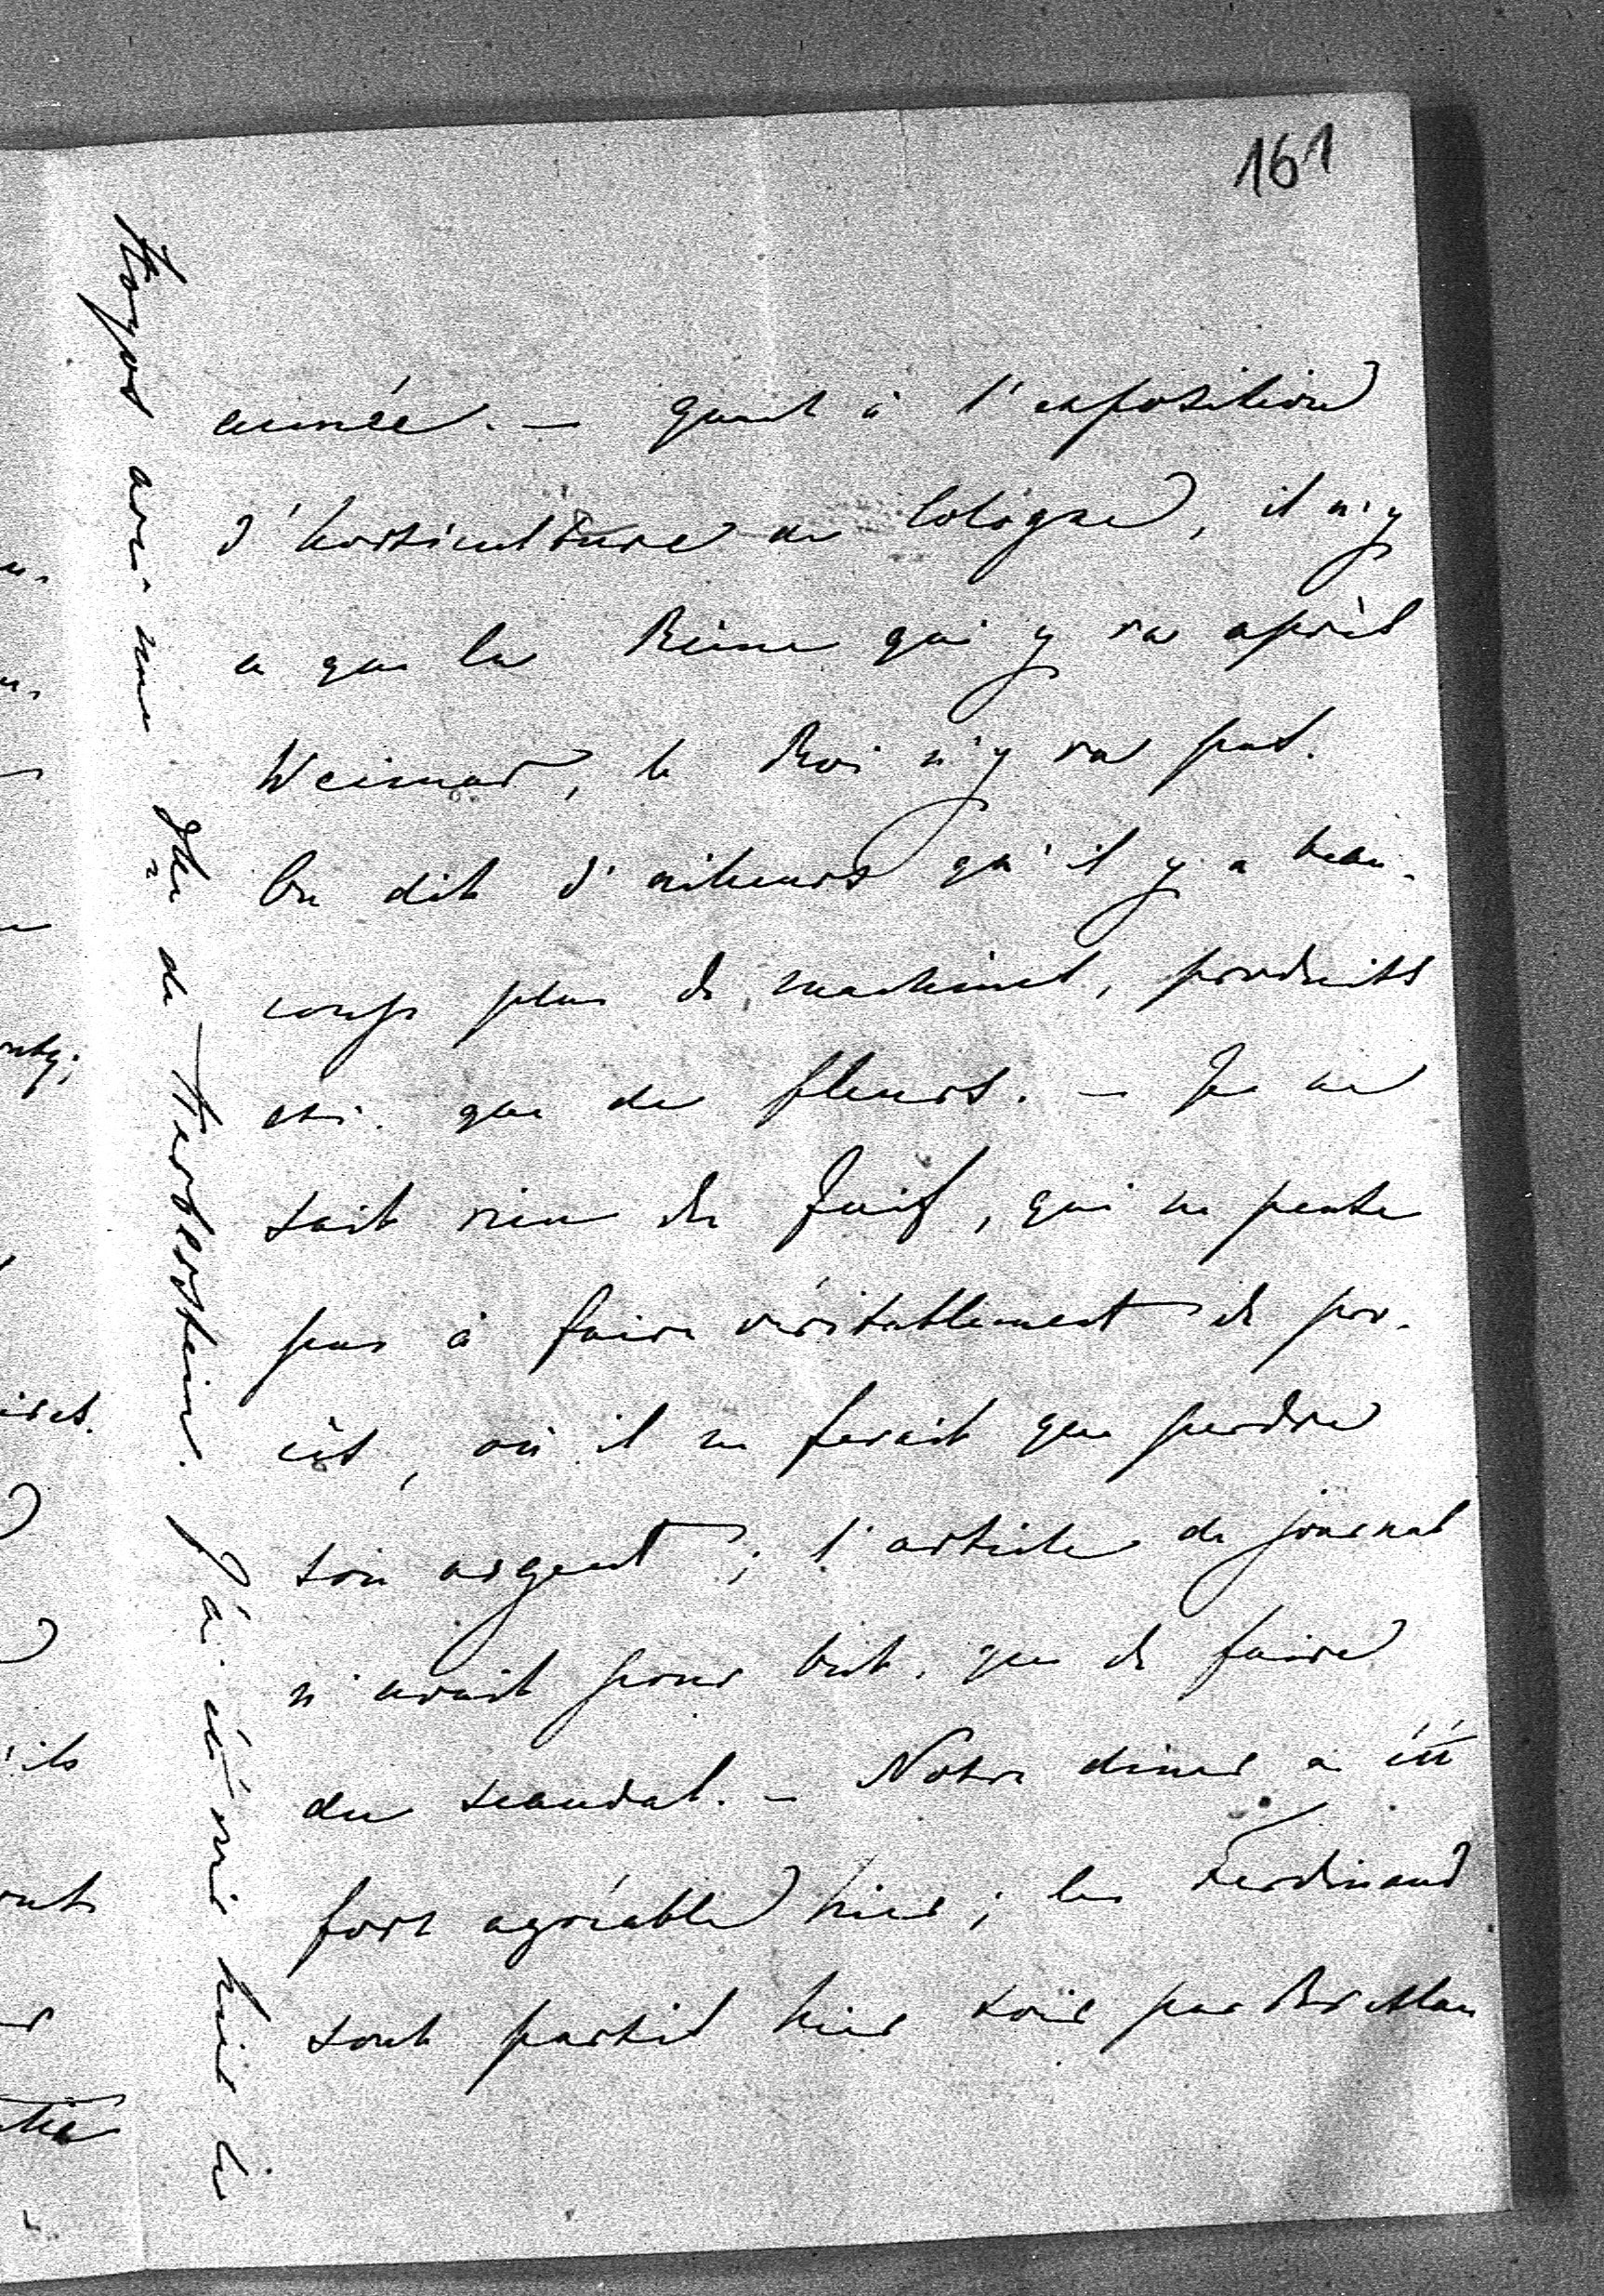 161
année. — quant à l'exposition
d'horticulture de Cologne, il n'y
a que la Reine qui y va après
Weimar, le Roi n'y va pas.
On dit d'ailleurs qu'il y a beau-
coup plus de machines, produits
etc. que de fleurs. — Je ne
sais rien du Juif, qui ne pense
pas à faire véritablement de pro-
cès, où il ne ferait que perdre
son argent; l'article de journal
n'avait pour but que de faire
du scandal. — Notre diner a été
fort agréable hier; les Ferdinand
sont partis hier soir par Breslau
avec une de Herberstein. J'ai écrit hier